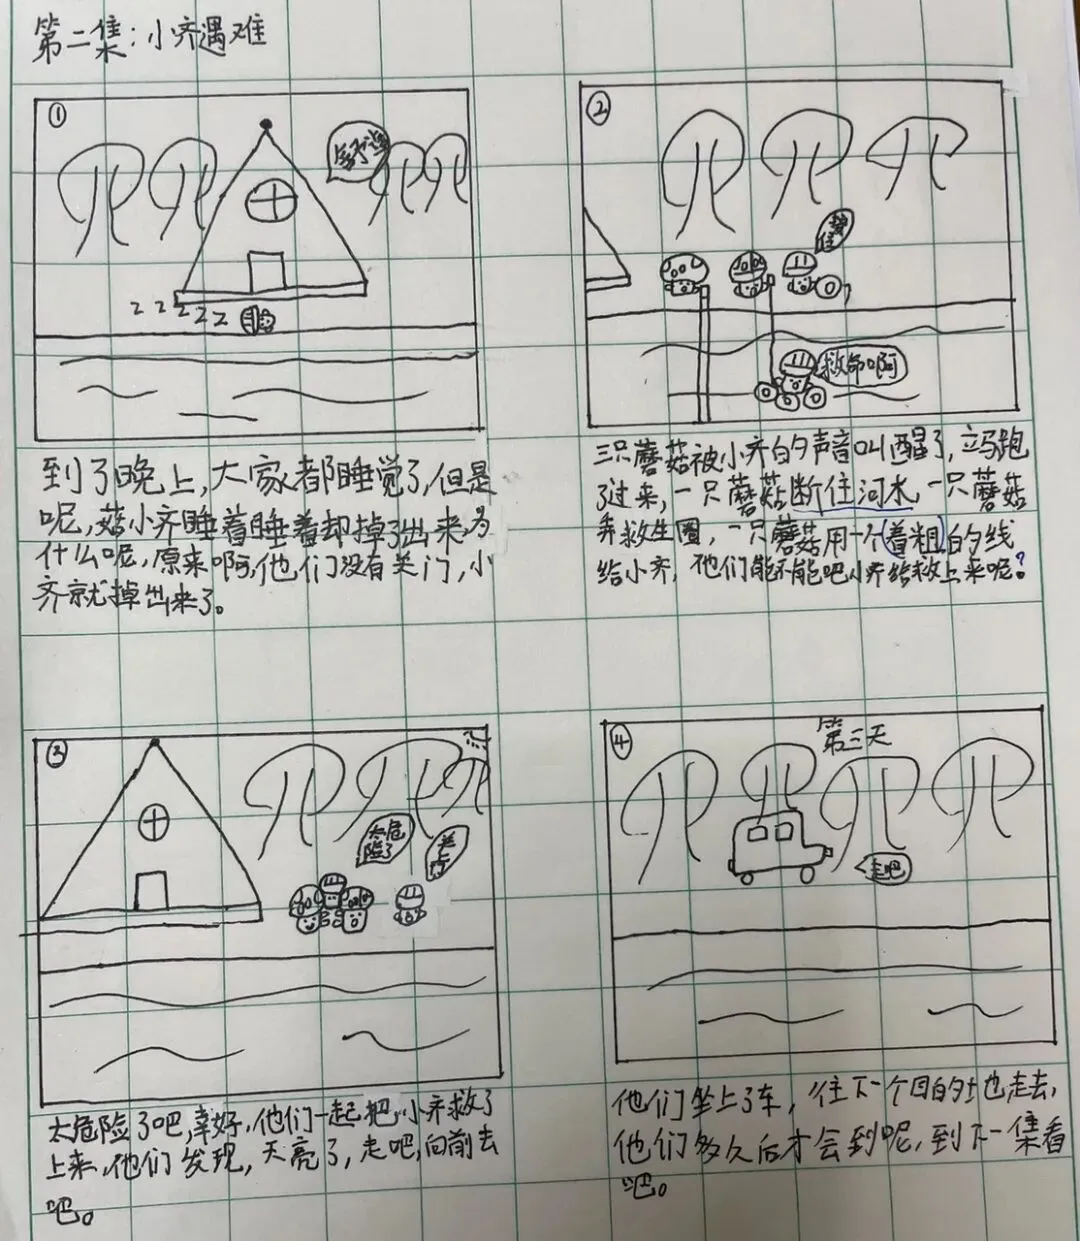 第二集：小齐遇难
①
z z z z z z
到了晚上，大家都睡觉了，但是
呢，菇小齐睡着睡着却掉了出来为
什么呢，原来啊，他们没有关门，小
齐就掉出来了。
②
救命啊
三只蘑菇被小齐的声音叫醒了，立马跑
了过来，一只蘑菇断住河水一只蘑菇
弄救生圈，一只蘑菇用一个着粗的线
给小齐，他们能不能吧小齐给救上来呢？
③
太危
险了
太危险了吧，幸好，他们一起把，小齐救了
上来，他们发现，天亮了，走吧，向前去
吧。
④
第三天
走吧
他们坐上了车，往下一个目的地走去，
他们多久后才会到呢，到下一集看
吧。